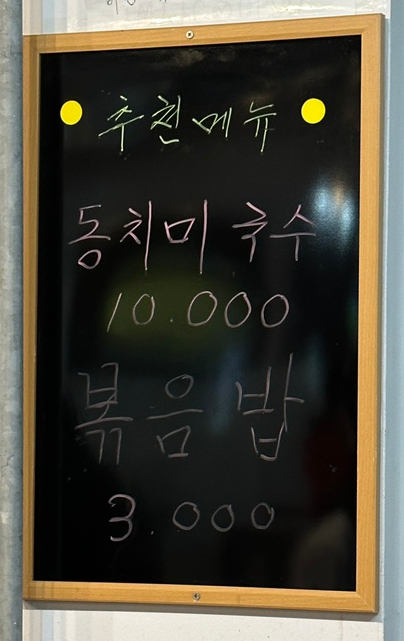 추천메뉴
동치미 국수
10.000
볶음 밥
3.000